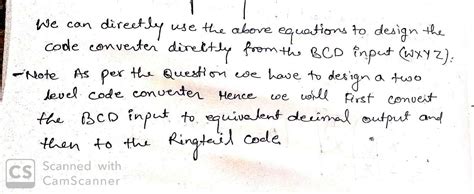 We can directly use the above equations to design the
code converter directly from the BCD input (WXYZ).
-Note As per the Question we have to design a two
level code converter Hence we will First convert
the BCD input to equivalent decimal output and
then to the Ringtail code
CS Scanned with
CamScanner